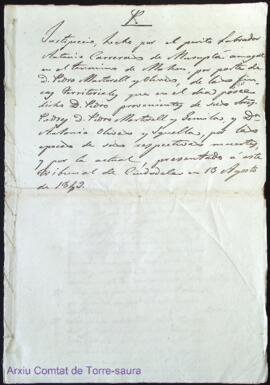 Justiprecio, hecho por el perito Labrador
Antonio Carreras de
en el termino de Mahon, por parte de
D. Pedro Martorell y Olives, de las fin-
cas territoriales que en el dia posee
dicho D. Pedro provenientes de sus
Padres D. Pedro Martorell y y Dª
Antonia Olives y Squella, por las
epocas de sus respectivas muertes,
y por la actual, presentado á este
Tribunal de Ciudadela en 13 Agosto
de 1843.
Arxiu Comtat de Torre-saura